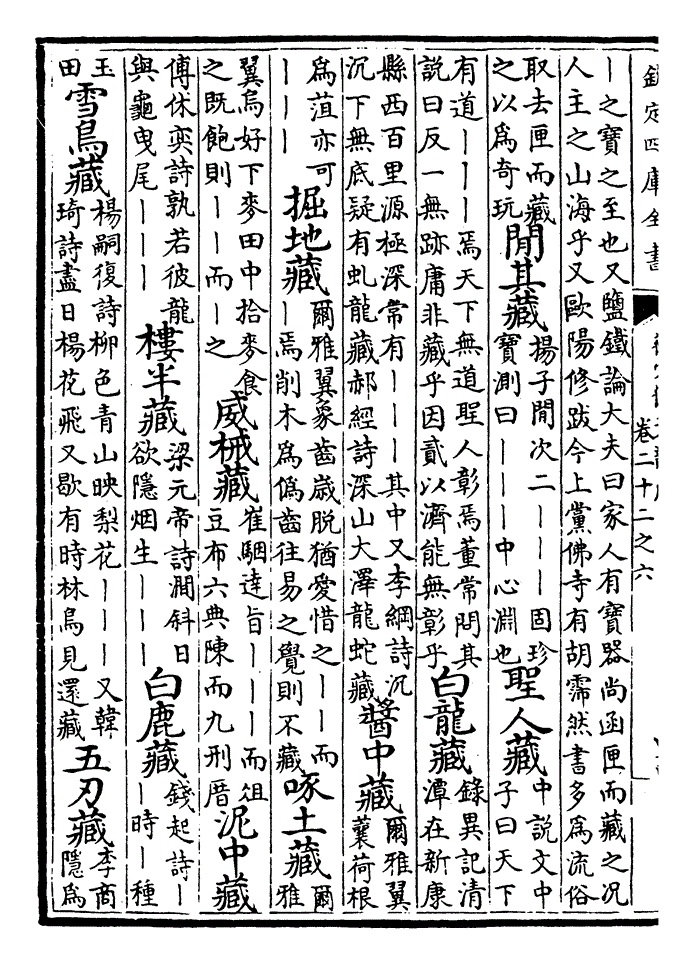 欽定四庫全書 卷二十二之六
丨之寶之至也又鹽鐵論大夫曰家人有寶器尚函匣而藏之况
人主之山海乎又歐陽修跋今上黨佛寺有胡霈然書多為流俗
取去匣而藏
之以為奇玩
閒其藏
揚子閒次二丨丨丨固珍
寶測曰丨丨丨中心淵也
聖人藏
中說文中
子曰天下
有道丨丨丨焉天下無道聖人彰焉董常問其
說曰反一無跡庸非藏乎因貳以濟能無彰乎
白龍藏
錄異記清
潭在新康
縣西百里源極深常有丨丨丨其中又李綱詩沉
沉下無底疑有虬龍藏郝經詩深山大澤龍蛇藏
醬中藏
爾雅翼
蘘荷根
為菹亦可
丨丨丨
掘地藏
爾雅翼象齒歲脫猶愛惜之丨丨而
丨焉削木為偽齒往易之覺則不藏
啄土藏
爾
雅
翼烏好下麥田中拾麥食
之既飽則丨丨而丨之
威械藏
崔駰達旨丨丨丨而俎
豆布六典陳而九刑厝
泥中藏
傅休奕詩孰若彼龍
與龜曳尾丨丨丨
樓半藏
梁元帝詩澗斜日
欲隱烟生丨丨丨
白鹿藏
錢起詩丨
丨時丨種
玉
田
雪烏藏
楊嗣復詩柳色青山映梨花丨丨丨又韓
琦詩盡日楊花飛又歇有時林烏見還藏
五刃藏
李商
隱為